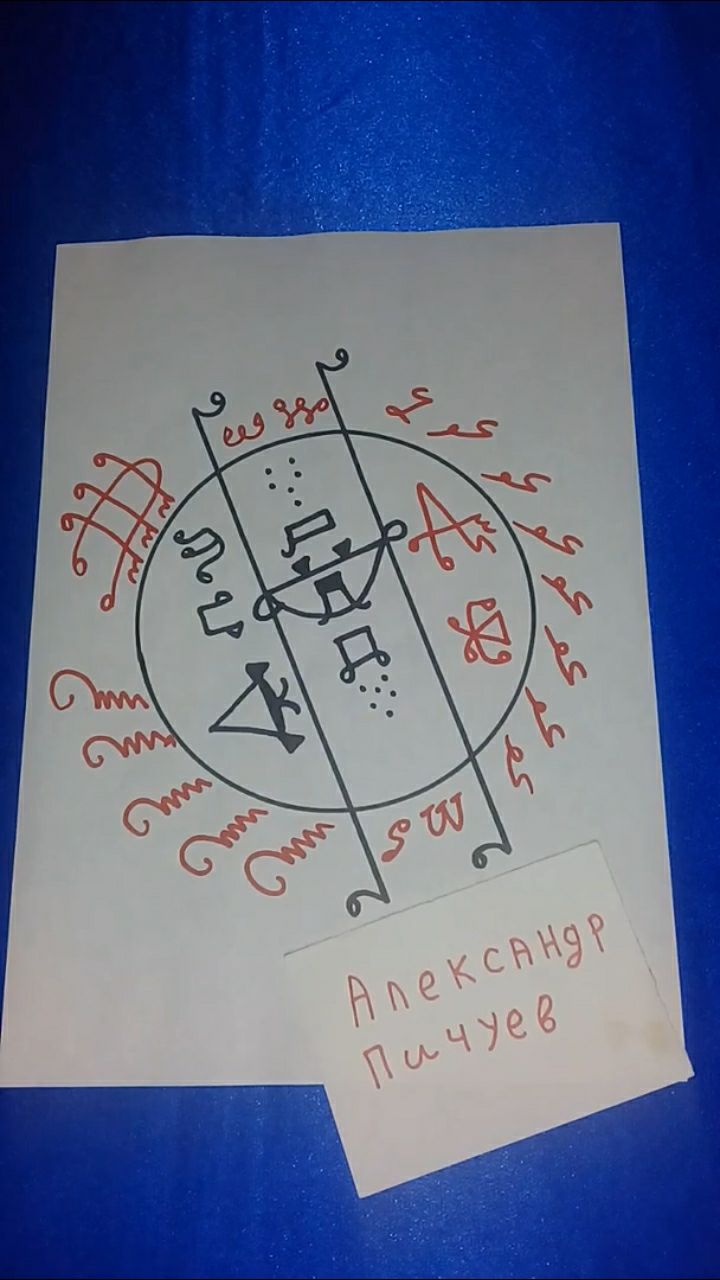 Александр
Пичуев